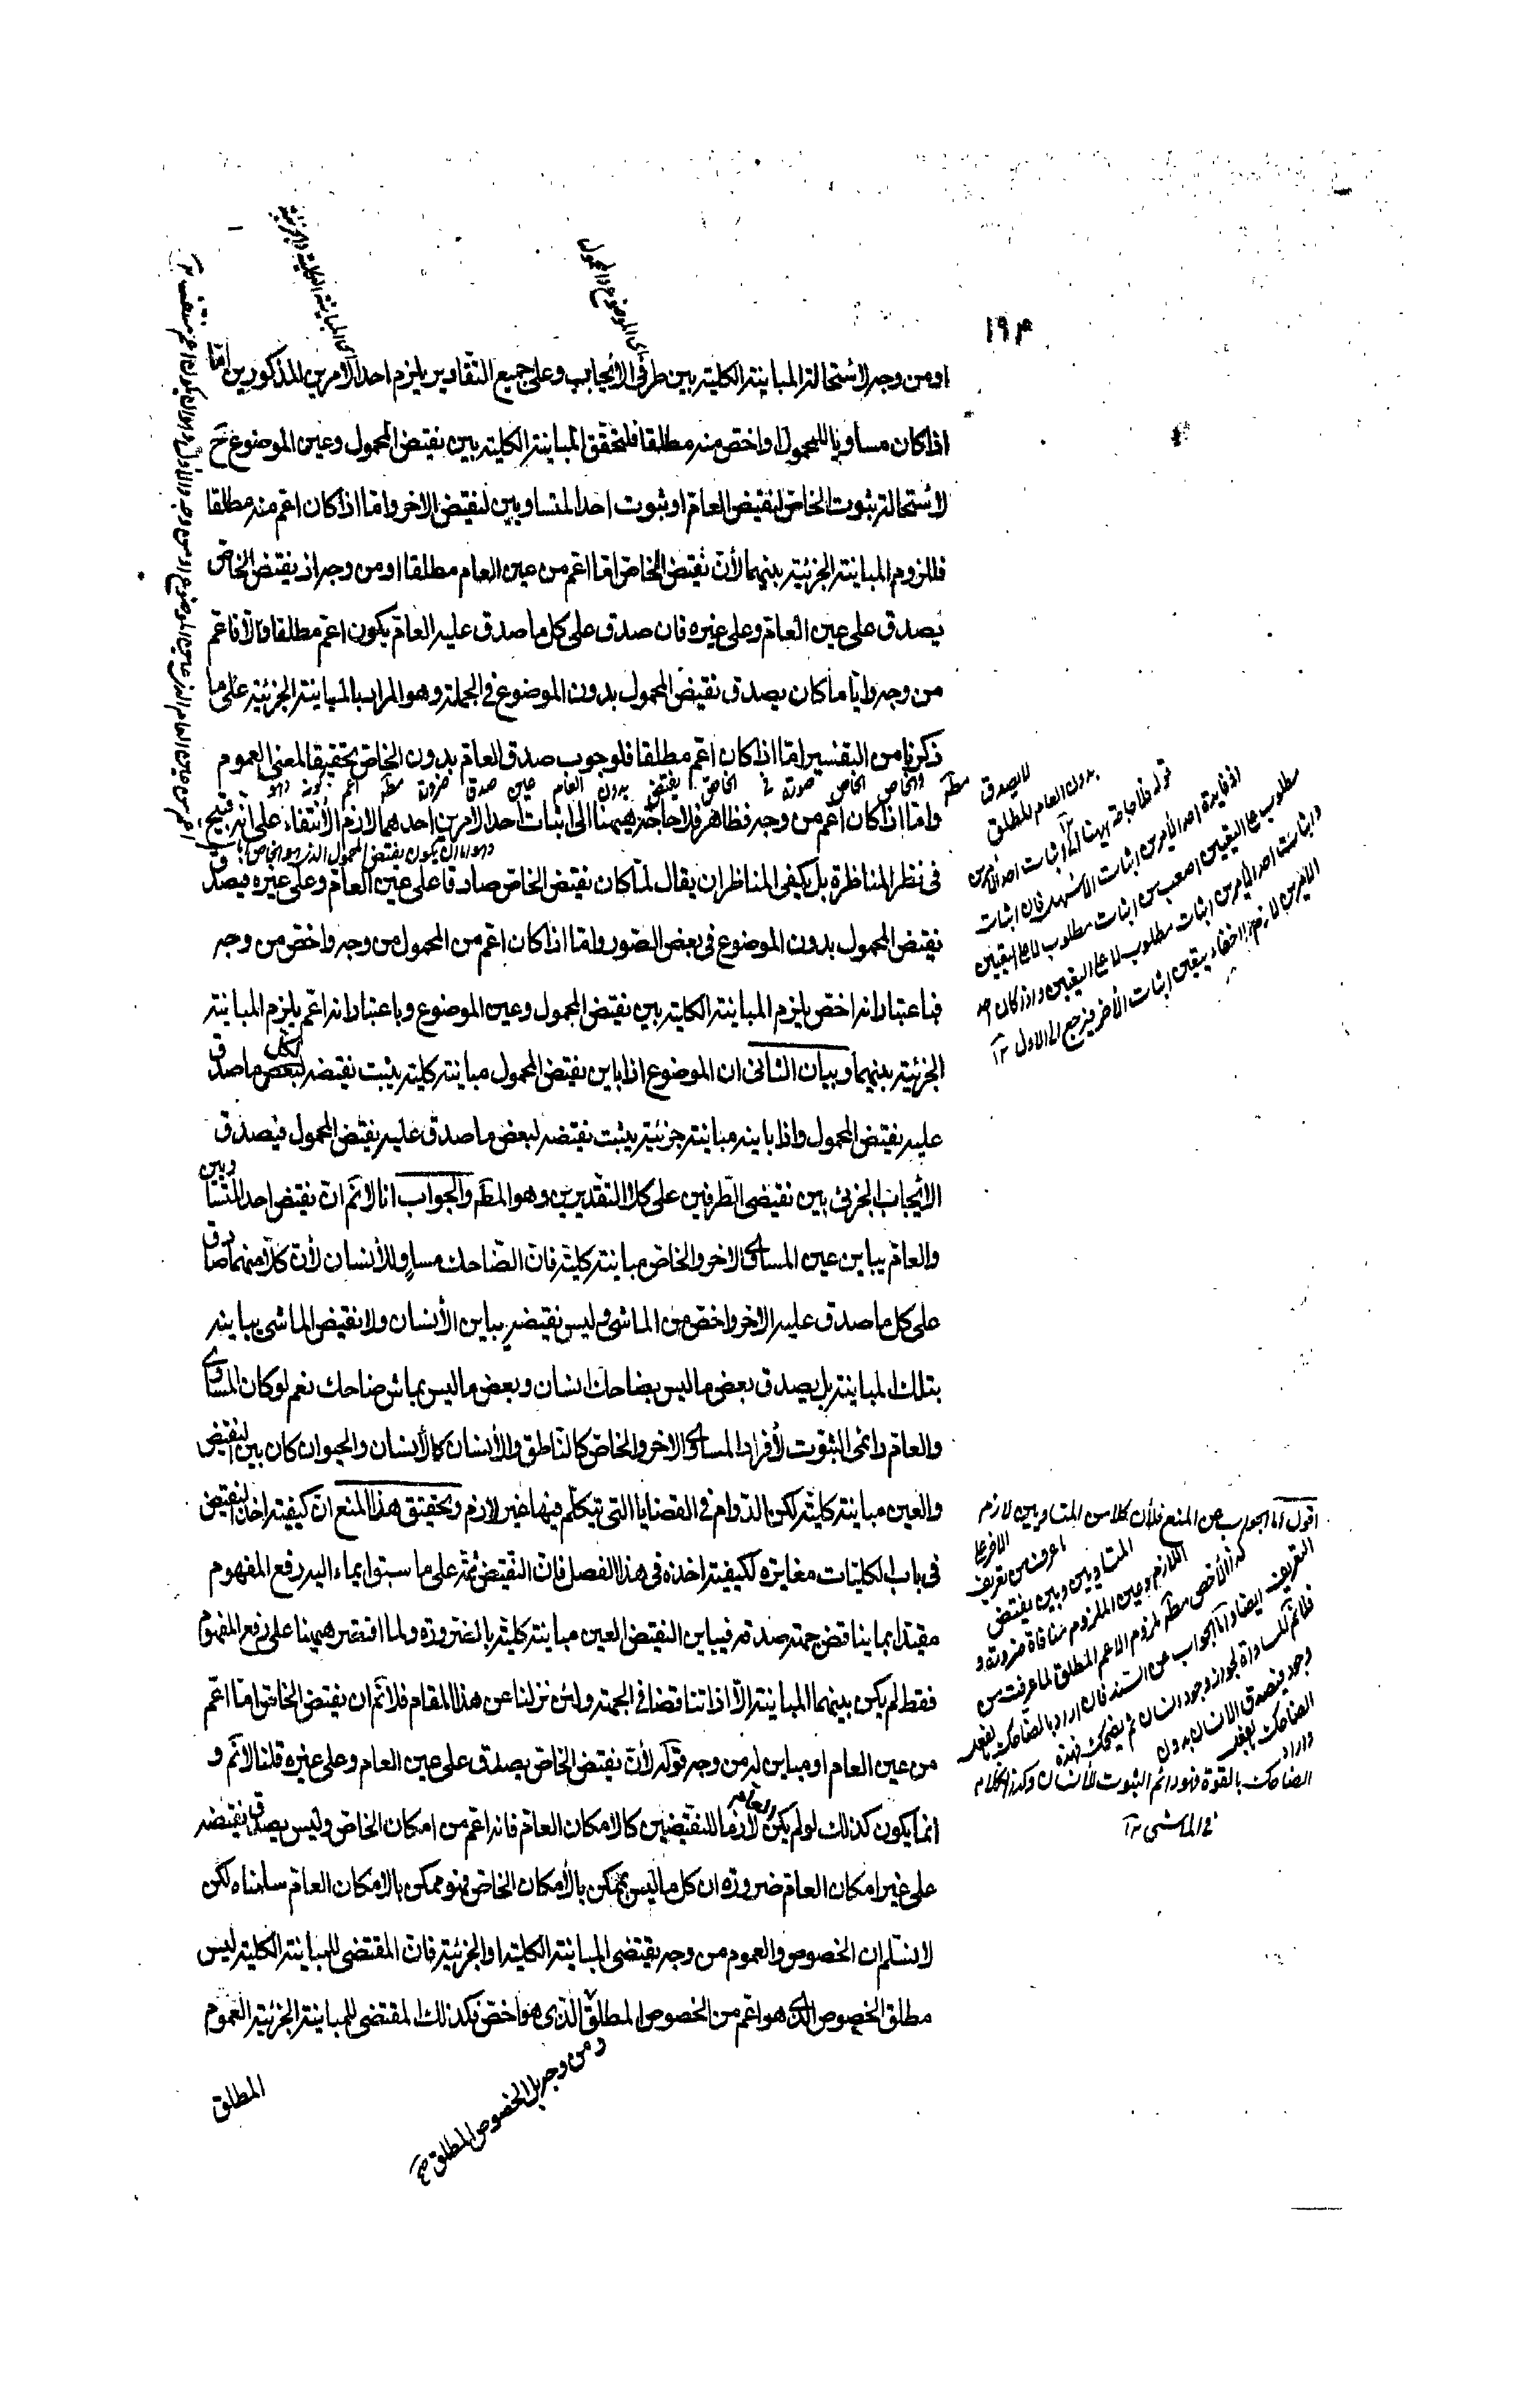 ١٩۴
او من وجه لاستحالة المباينة الكلية بين طرفى الايجاب وعلى جميع التقادير يلزم احد الامرين المذكورين امّا
اذا كان مساويا للمحمول او اخصّ منه مطلقا فلتحقّق المباينة الكلية بين نقيض المحمول وعين الموضوع ح
لاستحالة ثبوت الخاصّ لنقيض العامّ او ثبوت احد المتساويين لنقيض الاخر وامّا اذا كان اعمّ منه مطلقا
فللزوم المباينة الجزئية بينهما لأنّ نقيض الخاصّ امّا اعمّ من عين العام مطلقا او من وجه اذ نقيض الخاصّ
يصدق على عين العامّ وعلى غيره فان صدق على كل ما صدق عليه العامّ يكون اعمّ مطلقا والّا فاعمّ
من وجه وايّا ما كان يصدق نقيض المحمول بدون الموضوع فى الجملة وهو المراد بالمباينة الجزئية على ما
ذكرنا من التفسير امّا اذا كان اعمّ مطلقا فلوجوب صدق العامّ بدون الخاصّ تحقيقا لمعنى العموم
وامّا اذا كان اعمّ من وجه فظاهر فلا حاجة هيهنا الى اثبات احد الامرين احدهما لازم الأنتفاء على انّه قبيح
فى نظر المناظرة بل يكفى المناظر ان يقال لمّا كان نقيض الخاصّ صادقا على عين العامّ وعلى غيره فيصدق
نقيض المحمول بدون الموضوع فى بعض الصّور وامّا اذا كان اعمّ من المحمول من وجه واخصّ من وجه
فباعتبار انه اخصّ يلزم المباينة الكلية بين نقيض المحمول وعين الموضوع وباعتبار انه اعمّ يلزم المباينة
الجزئية بينهما وبيان الثانى ان الموضوع اذا باين نقيض المحمول مباينة كلية يثبت نقيضه لكل ما صدق
عليه نقيض المحمول واذا باينه مباينة جزئية يثبت نقيضه لبعض ما صدق عليه نقيض المحمول فيصدق
الايجاب الجزئى بين نقيضى الطّرفين على كلا التقديرين وهو المط والجواب انا لا نمّ انّ نقيض احد المتساويين
والعامّ يباين عين المساوى الاخر والخاصّ مباينة كلية فانّ الضّاحك مساوٍ للأنسان لأن كلّا منهما صادق
على كل ما صدق عليه الاخر واخصّ من الماشى وليس نقيضه يباين الأنسان ولا نقيض الماشى يباينه
بتلك المباينة بل يصدق بعض ما ليس بضاحك انسان وبعض ما ليس بماش ضاحك نعم لو كان المساوى
والعامّ دائمى الثبوت لأفراد المساوى الاخر والخاصّ كالنّاطق والأنسان كالأنسان والحيوان كان بين النقيض
والعين مباينة كلية لكن الدّوام فى القضايا التى تيكلّم فيها غير لازم وتحقيق هذا المنع انّ كيفية اخذ النقيض
فى باب الكليات مغايرة لكيفية اخذه فى هذا الفصل فانّ النّقيض ثمّة على ما سبق ايماء اليه رفع المفهوم
مقيّدا بما يناقض جهة صدقه فيباين النقيض العين مباينة كلية بالضرورة ولما اقتصر هيهنا على رفع المفهوم
فقط لم يكن بينهما المباينة الّا اذا تناقضا فى الجهة ولئن نزلنا عن هذا المقام فلا نمّ ان نقيض الخاصّ امّا اعمّ
من عين العام او مباين له من وجه قوله لأنّ نقيض الخاصّ يصدق على عين العام وعلى غيره قلنا لا نمّ و
انما يكون كذلك لو لم يكن العام لازما للنقيضين كالامكان العامّ فانه اعمّ من امكان الخاصّ وليس يصدق نقيضه
على غير امكان العامّ ضرورة ان كل ما ليس بممكن بالأمكان الخاصّ فهو ممكن بالامكان العامّ سلمناه لكن
لا نسلّم ان الخصوص والعموم من وجه يقتضى المباينة الكلية او الجزئية فانّ المقتضى للمباينة الكلية ليس
مطلق الخصوص الذى هو اعمّ من الخصوص المطلق الّذى هو اخصّ فكذلك المقتضى للمباينة الجزئية العموم
المطلق
و من وجه بل الخصوص المطلق
اى الموضوع والمحمول
اى المباينة الكلية والجزئية
وهو اما ان يكون نقيض المحمول الذى هو الخاص
قوله فلا حاجة هيهنا الى اثبات احد الامرين
اذ فايدة احد الأمرين اثبات
مطلوب على التعيين اصعب من اثبات مطلوب لا على التعيين
واثبات احد الأمرين اثبات مطلوب لا على التعيين واذ كان احد
يتعين اثبات الأخر فيرجع الى الاول ١٢
اقول اما الجواب عن المنع فلأن كلا من المتساويين لازم
الاخر على
ما عرفت من تعريف
المتساويين وبين نقيض
اللازم وعين الملزوم منافاة ضرورة و
كذا الأخص مط ملزوم الاعم المطلق لما عرفت من
التعريف ايضا واما الجواب عن السند فان اراد بالضاحك بالفعل
فلا نم المساواة لجواز وجود انسان لم يضحك
وجد فيصدق الانسان بدون
الضاحك بالفعل
واراد
الضاحك بالقوة فهو دائم الثبوت للأنسان وكذا الكلام
فى الماشى ١٢